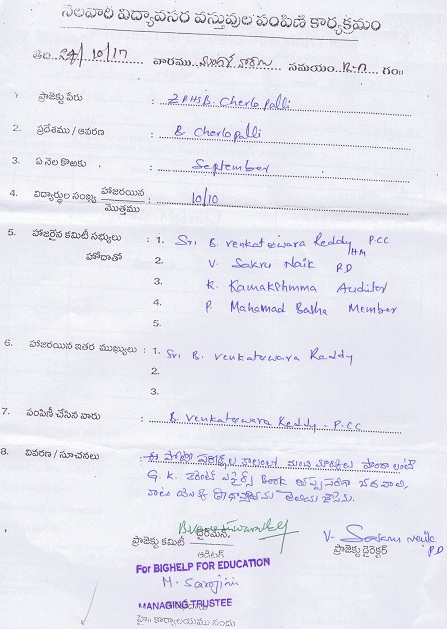 నెలవారి విద్యావసర వస్తువుల పంపిణి కార్యక్రమం
తేది 24/10/17 వారము మంగళ వారం సమయం గం॥
1. ప్రాజెక్టు పేరు : ZPHS B. Cherlopalli
2. ప్రదేశము / ఆవరణ : B. Cherlopalli
3. ఏ నెల కొఱకు : September
4. విద్యార్థుల సంఖ్య హాజరయిన / మొత్తము : 10/10
5. హాజరైన కమిటీ సభ్యులు : 1. Sri B. venkateswara Reddy P.CC /HM
హోదాతో 2. V. Sakru Naik P.D
3. K. Kamakshmma Auditor
4. P. Mahamad Basha Member
5.
6. హాజరయిన ఇతర ముఖ్యులు : 1. Sri B. venkateswara Reddy
2.
3.
7. పంపిణీ చేసిన వారు : B. venkateswara Reddy - P.CC
8. వివరణ / సూచనలు : ఈ పోటీ పరీక్షల కాలంలో మంచి మార్కులు పొందాలంటే
G.K. కరెంట్ ఎఫైర్స్ Book తప్పనిసరిగా చదవాలి,
వాటి యొక్క ప్రాధాన్యతను తెలియ చేసెను.
ప్రాజెక్టు కమిటీ ఛైర్మన్ / ఆడిటర్
V- Sakru Naik P.D
ప్రాజెక్టు డైరెక్టర్
For BIGHELP FOR EDUCATION
M. Sarojini
MANAGING TRUSTEE
హెడ్ కార్యాలయము నందు